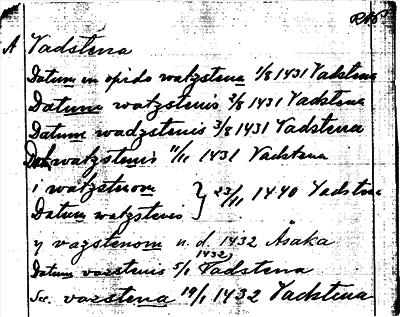 A Vadstena
Datum in opido watzstena 1/8 1431 Vadstena
Datum watzstenis 2/8 1431 Vadstena
Datum wadzstenis 3/8 1431 Vadstena
Dat watzstenis 11/11 1431 Vadstena
i watzstenom
Datum watzstenis } 23/11 1440 Vadstena
y vagstenom u. d. 1432 Åsaka
Datum vazstenis 5/1 1432 Vadstena
vazstena 19/1 1432 Vadstena